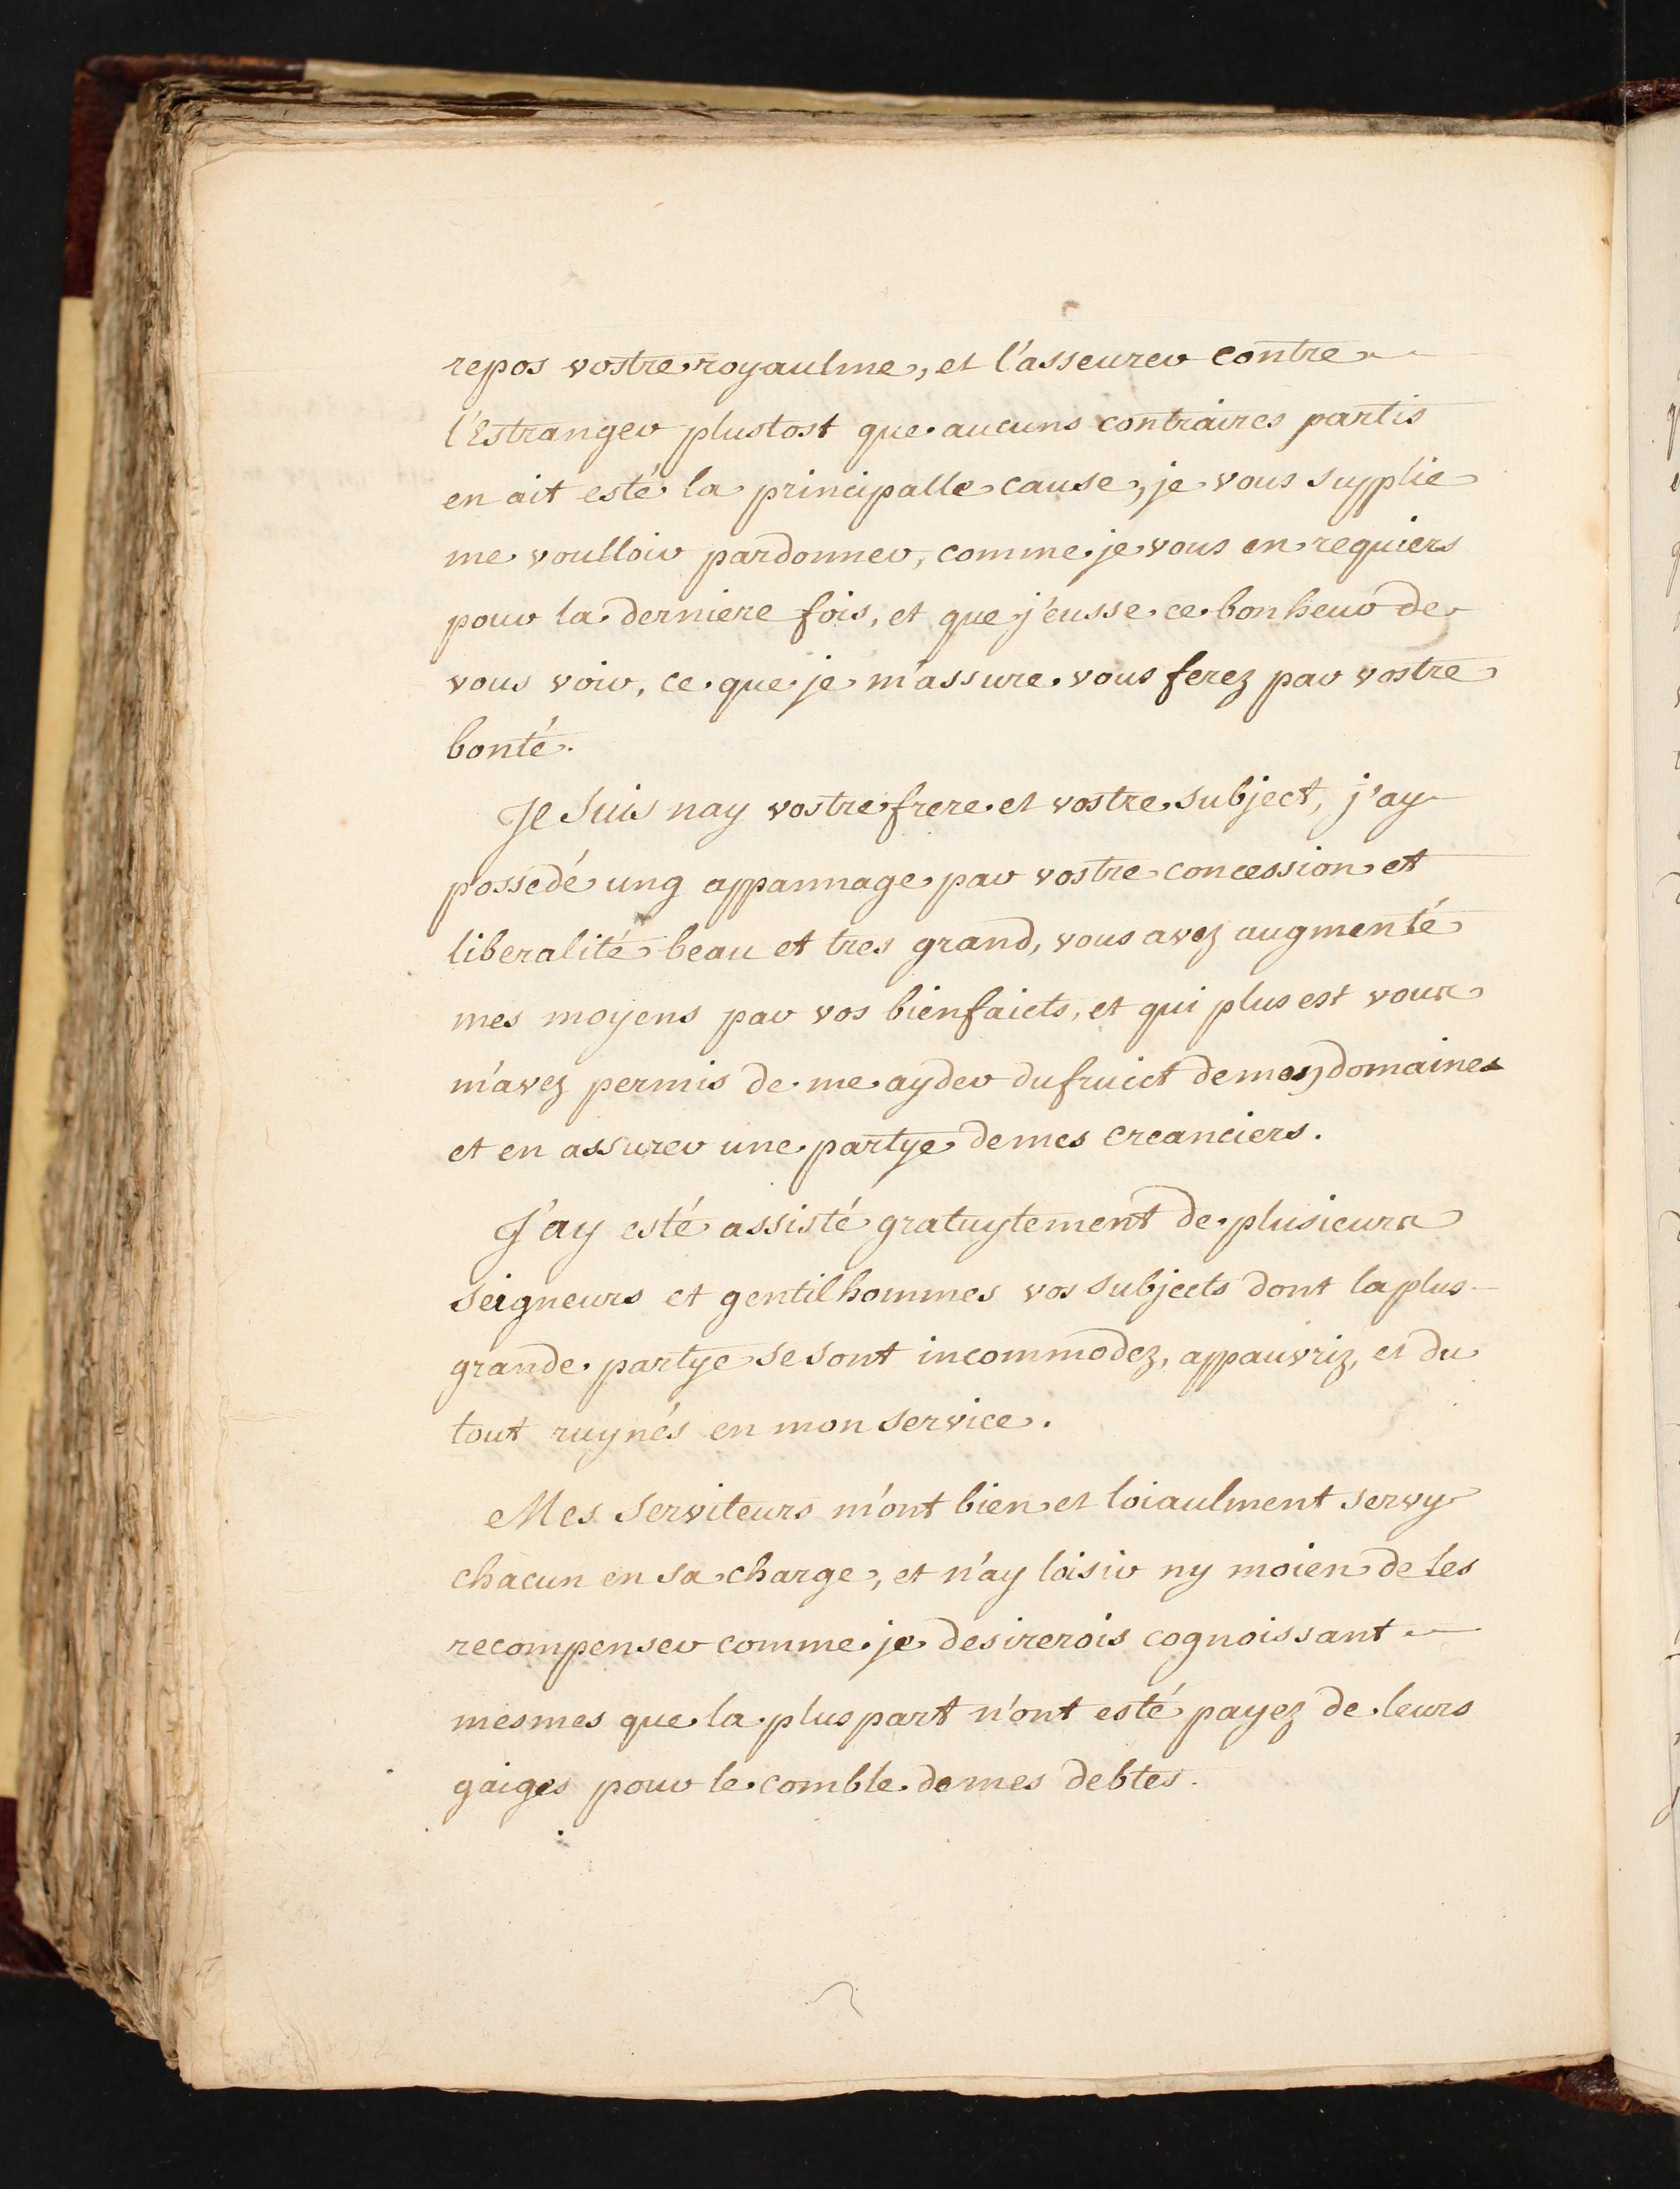 repos vostre royaulme, et l'asseurer contre
l'Estranger plustost que aucuns contraires partis
en ait esté la principalle cause, je vous supplie
me voulloir pardonner, comme je vous en requiers
pour la derniere fois, et que j'eusse ce bonheur de
vous voir, ce que je m'assure vous ferez par vostre
bonté.
Je suis nay vostre frere et vostre subject, j'ay
possedé ung appannage par vostre concession et
liberalité beau et tres grand, vous avez augmenté
mes moyens par vos bienfaicts, et qui plus est vous
m'avez permis de me ayder du fruict de mes domaines
et en assurer une partye de mes creanciers.
J'ay esté assisté gratuytement de plusieurs
seigneurs et gentilhommes vos subjects dont la plus
grande partye se sont incommodez, appauvriz, et du
tout ruynés en mon service.
Mes serviteurs m'ont bien et loiaulment servy
chacun en sa charge, et n'ay loisir ny moien de les
recompenser comme je desirerois cognoissant
mesmes que la plus part n'ont esté payez de leurs
gaiges pour le comble de mes debtes.